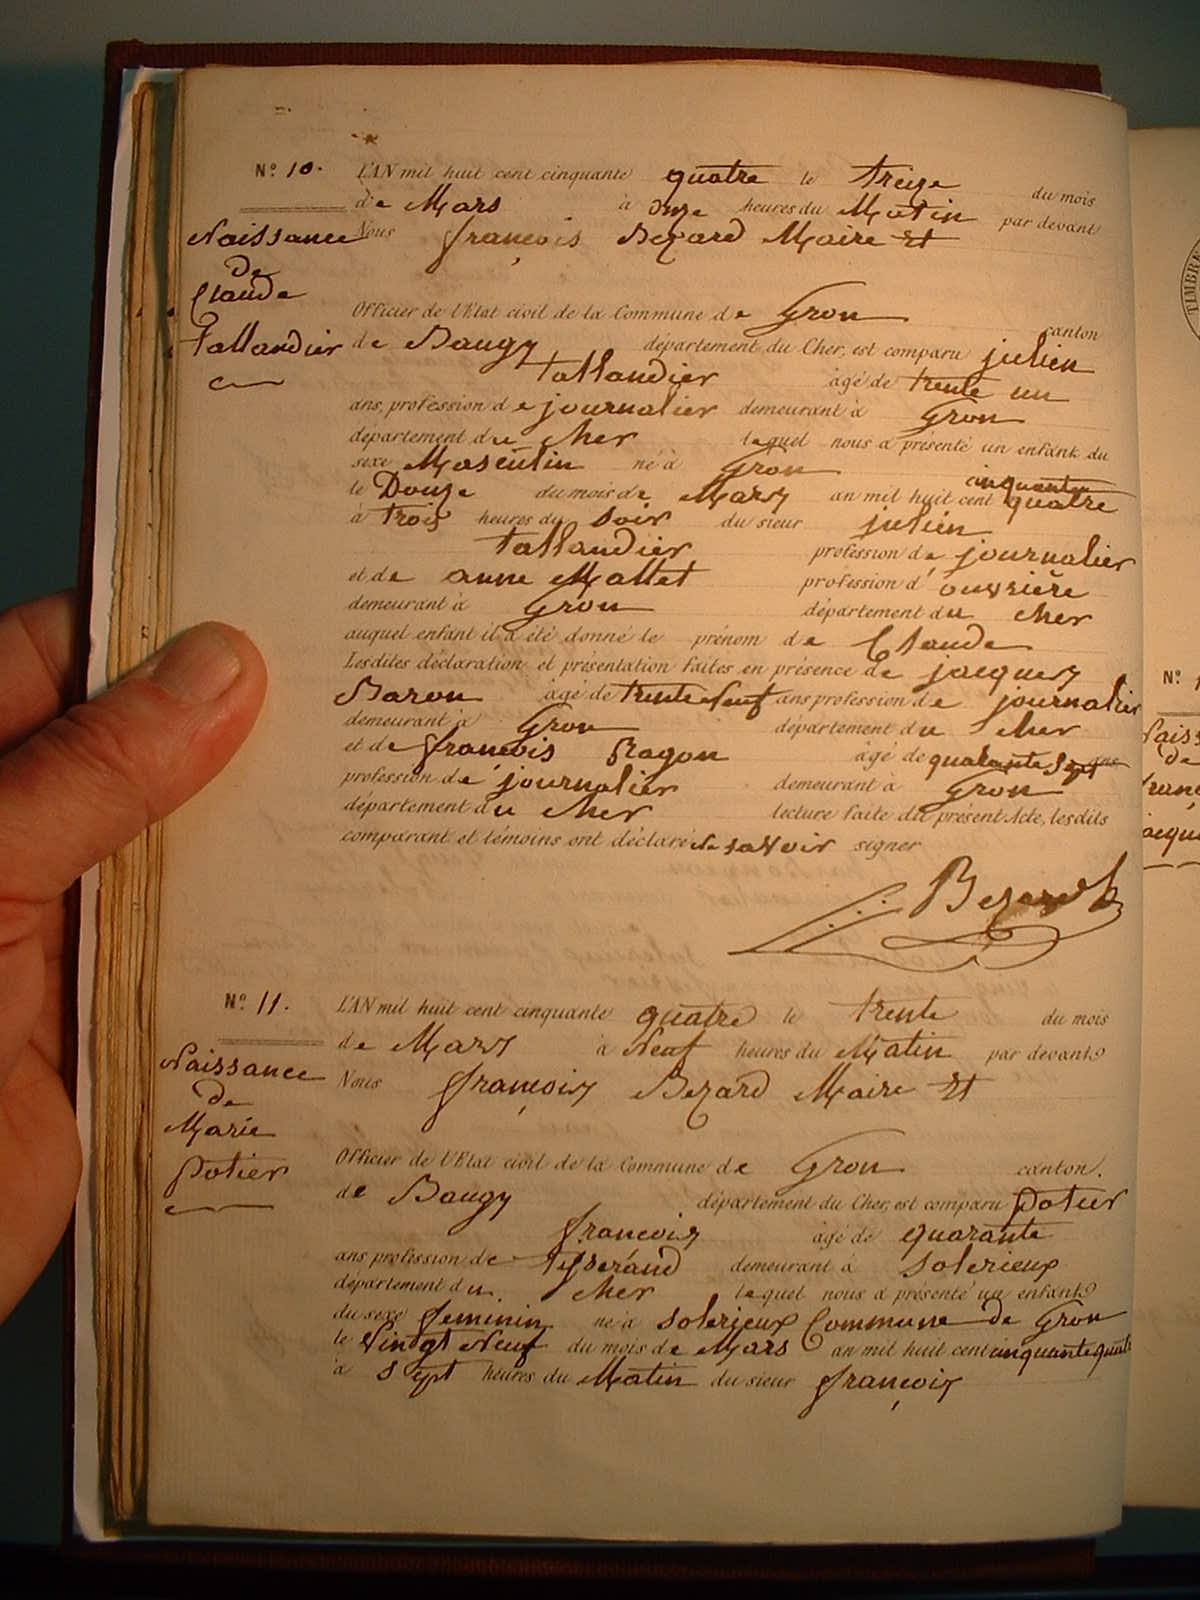 Nº 10. L'AN mil huit cent cinquante quatre le treize du mois
de Mars à onze heures du Matin par devant
Nous françois Bezard Maire Et
Naissance
de
Claude
tallandier
Officier de l'Etat civil de la Commune de Gron canton
de Baugy département du Cher, est comparu julien
tallandier âgé de trente un
ans, profession de journalier demeurant à Gron
département du cher lequel nous a présenté un enfant du
sexe Masculin né à Gron
le Douze du mois de Mars an mil huit cent cinquante quatre
à trois heures du soir du sieur julien
tallandier profession de journalier
et de anne Mallet profession d'ouvrière
demeurant à Gron département du cher
auquel enfant il a été donné le prénom de Claude
Lesdites déclaration et présentation faites en présence de jacques
Baron âgé de trente Neuf ans profession de journalier
demeurant à Gron département du cher
et de françois Ragon âgé de quatante sept ans
profession de journalier demeurant à Gron
département du cher lecture faite du présent Acte, lesdits
comparant et témoins ont déclaré Ne savoir signer
Bezard
Nº 11. L'AN mil huit cent cinquante quatre le trente du mois
de Mars à Neuf heures du Matin par devant
Nous françois Bezard Maire Et
Naissance
de
Marie
potier
Officier de l'Etat civil de la Commune de Gron canton.
de Baugy département du Cher, est comparu potier
françois âgé de quarante
ans profession de tisserand demeurant à solerieux
département du cher lequel nous a présenté un enfant
du sexe feminin né à solerieux Commune de Gron
le Vingt Neuf du mois de Mars an mil huit cent cinquante quatre
à sept heures du Matin du sieur françois
TIMBRE
Nº